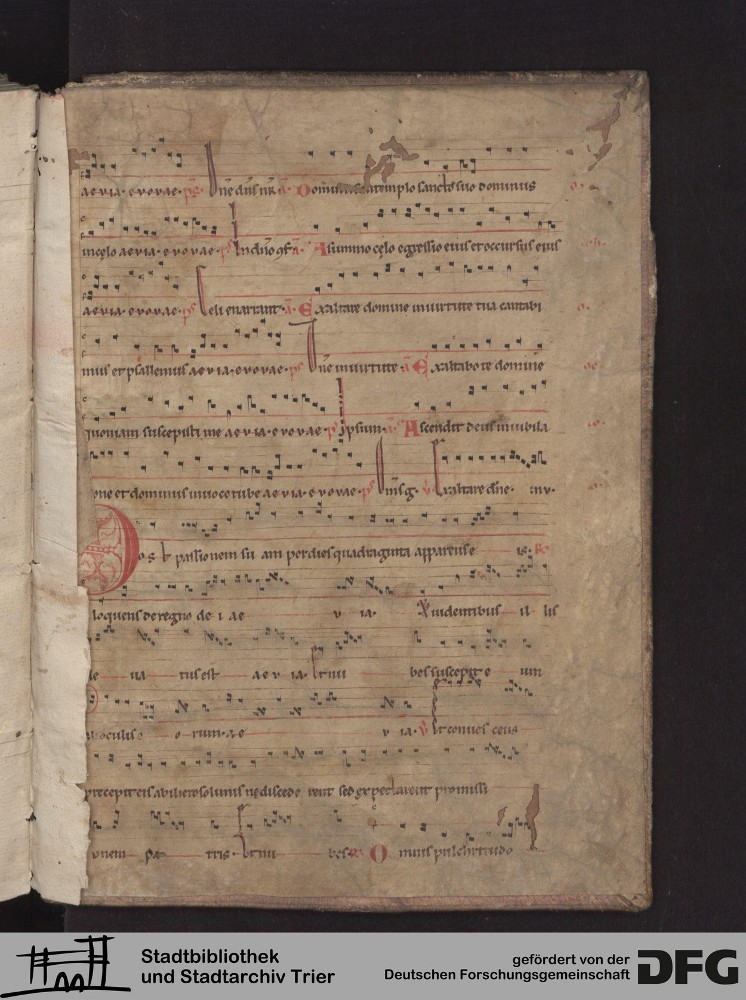 aevia. evovae. ps. Dne dns nr. a. Dominus in templo sancto suo dominus
in celo aevia. evovae. ps In dno gf. a. A summo celo egressio eius et occursus eius
aevia. evovae. ps Celi enarrant. a. Exaltare domine in virtute tua cantabi
mus et psallemus aevia. evovae. ps Dne in virtute. a Exaltabo te domine
quoniam suscepisti me aevia. evovae. ps ipsum. a. Ascendit deus in iubila
one et dominus in voce tube aevia. evovae. ps v Exaltare dne.
Post passionem su am per dies quadraginta apparens e is. R
loquens de regno de i ae v ia. Et videntibus il lis
le va tus est aev ia. Et nu bes suscepit e um
ab oculis e o rum. ae v ia. v Et conves cens
precepit eis ab iherosolimis ne discede rent sed expectarent promissi
onem pa tris. Et nu bes. R. Omnis pulchritudo
Stadtbibliothek
und Stadtarchiv Trier
gefördert von der
Deutschen Forschungsgemeinschaft
DFG